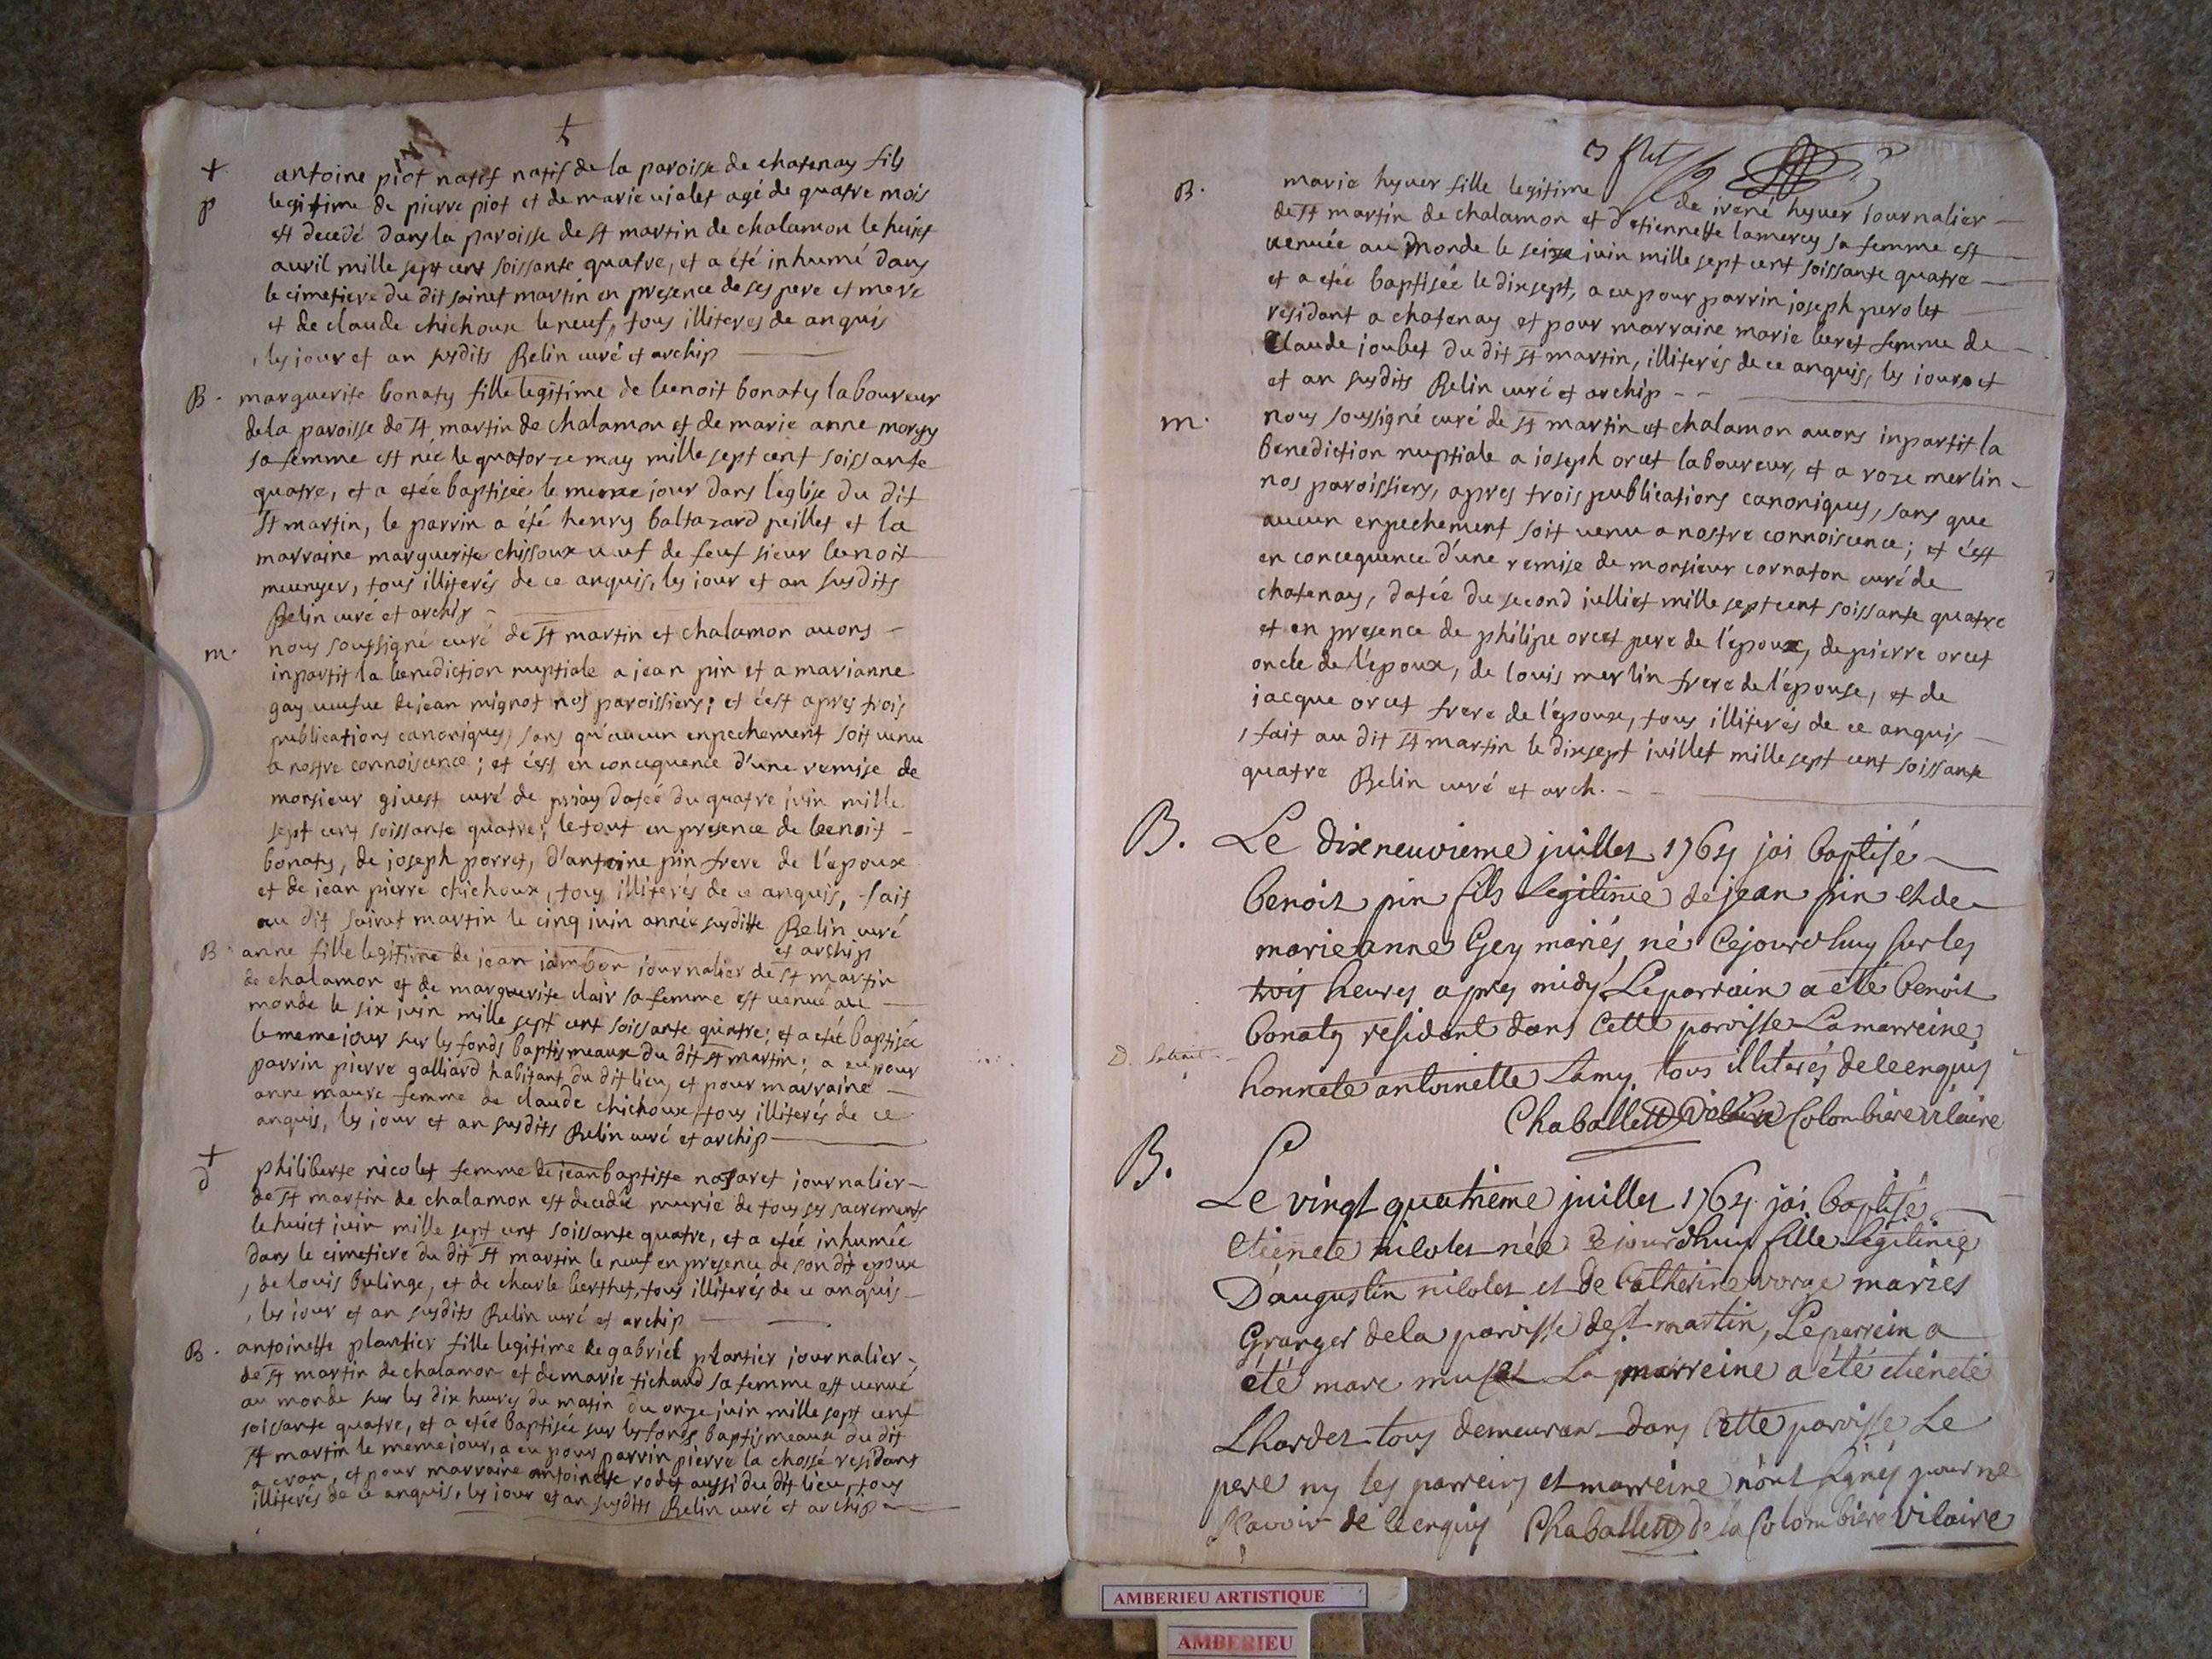 +
p
antoine piot natif natif de la paroisse de chatenay fils
legitime de pierre piot et de marie vialet agé de quatre mois
est decedé dans la paroisse de st martin de chalamon le huict
auril mille sept cent soissante quatre, et a été inhumé dans
le cimetiere du dit sainct martin en presence de ses pere et mere
et de claude chichoux le neuf, tous illiteres de anquis
, les jour et an susdits Belin curé et archip
B. marguerite bonaty fille legitime de benoit bonaty laboureur
de la paroisse de st martin de chalamon et de marie anne morgy
sa femme est née le quatorze may mille sept cent soissante
quatre, et a etée baptisée le meme jour dans l'eglise du dit
st martin, le parrin a été henry baltazard peillet et la
marraine marguerite chissoux de feuf sieur benoit
meunyer, tous illiterés de ce anquis, les jour et an susdits
Belin curé et archip
m. nous soussigné curé de st martin et chalamon auons
inpartit la benediction nuptiale a jean pin et a marianne
gay ueufue de jean mignot nos paroissiens; et c'est apres trois
publications canoniques, sans qu'aucun enpechement soit venu
a nostre connoisance; et c'est en concequence d'une remise de
monsieur givest curé de priay datée du quatre juin mille
sept cent soissante quatre; le tout en presence de benoit
bonaty, de joseph porret, d'antoine pin frere de l'epoux
et de jean pierre chichoux, tous illiterés de ce anquis, fait
au dit sainct martin le cinq juin année susditte Belin curé
et archip
B. anne fille legitime de jean jambon journalier de st martin
de chalamon et de marguerite clair sa femme est venue au
monde le six juin mille sept cent soissante quatre; et a etée baptisée
le meme jour sur les fonds baptismeaux du dit st martin; a eu pour
parrin pierre galliard habitant du dit lieu, et pour marraine
anne maure femme de claude chichoux, tous illiterés de ce
anquis, les jour et an susdits Belin curé et archip
+
d
philiberte nicolet femme de jean baptiste nosaret journalier
de st martin de chalamon est decedée munie de tous ses sacrements
le huict juin mille sept cent soissante quatre, et a etée inhumée
dans le cimetiere du dit st martin le neuf en presence de son dit epoux
, de louis bulinge, et de charle berthet, tous illiterés de ce anquis
, les jour et an susdits Belin curé et archip
B. antoinette plantier fille legitime de gabriel plantier journalier
de st martin de chalamon et de marie tichaud sa femme est venue
au monde sur les dix heures du matin du onze juin mille sept cent
soissante quatre, et a etée baptisée sur les fonds baptismeaux du dit
st martin le meme jour, a eu pour parrin pierre la chosse residant
a cran, et pour marraine antoinette rodet aussi du dit lieu, tous
illiterés de ce anquis, les jour et an susdits Belin curé et archip
B. marie hyuer fille legitime de irené hyuer journalier
de st martin de chalamon et d'etiennette lamercy sa femme est
venuée au monde le seize juin mille sept cent soissante quatre
et a etée baptisée le dixsept, a eu pour parrin joseph perolet
residant a chatenay et pour marraine marie beret femme de
Claude joubet du dit st martin, illiterés de ce anquis, les jours et
et an susdits Belin curé et archip
m. nous soussigné curé de st martin et chalamon auons inpartit la
benediction nuptiale a joseph orcet laboureur, et a roze merlin
nos paroissiens, apres trois publications canoniques, sans que
aucun enpechement soit venu a nostre connoisence; et c'est
en concequence d'une remise de monsieur cornaton curé de
chatenay, datée du second julliet mille sept cent soissante quatre
et en presence de philipe orcet pere de l'epoux, de pierre orcet
oncle de l'epoux, de louis merlin frere de l'epouse, et de
jacque orcet frere de l'epoux, tous illiterés de ce anquis
, fait au dit st martin le dixsept juillet mille sept cent soissante
quatre Belin curé et arch.
B. Le dixneuvieme juillet 1764 jai baptisé
benoit pin fils legitime de jean pin et de
marieanne Gey mariés, né cejourdhuy sur les
trois heures apres midy, Le parrain a été benoit
bonaty residant dans cette paroisse La marreine
honnete antoinette Lamy, tous illiterés de ce enquis
Chaballet Colombiere vicaire
B. Le vingt quatrieme juillet 1764 jai baptisé
etienete nicolet née cejourdhuy fille legitime
D'augustin nicolet et de Catherine vorge mariés
Granger dela paroisse de st martin, Le parrein a
été marc muset La marreine a été etienete
Lhardet tous demeurans dans cette paroisse Le
pere ny les parreins et marreine n'ont signés pour ne
scavoir de ce enquis Chaballet de la Colombiere vicaire
AMBERIEU ARTISTIQUE
AMBERIEU